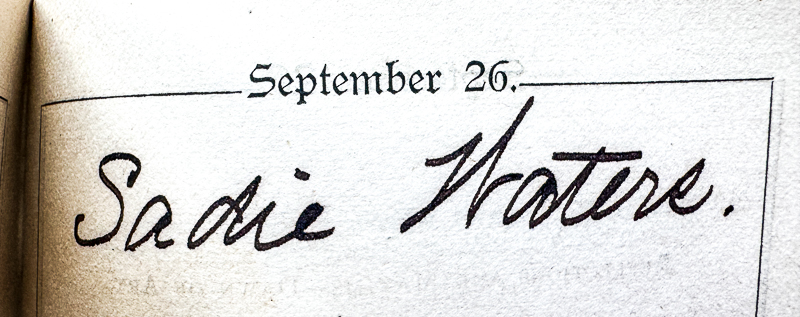 September 26.
Sadie Waters.